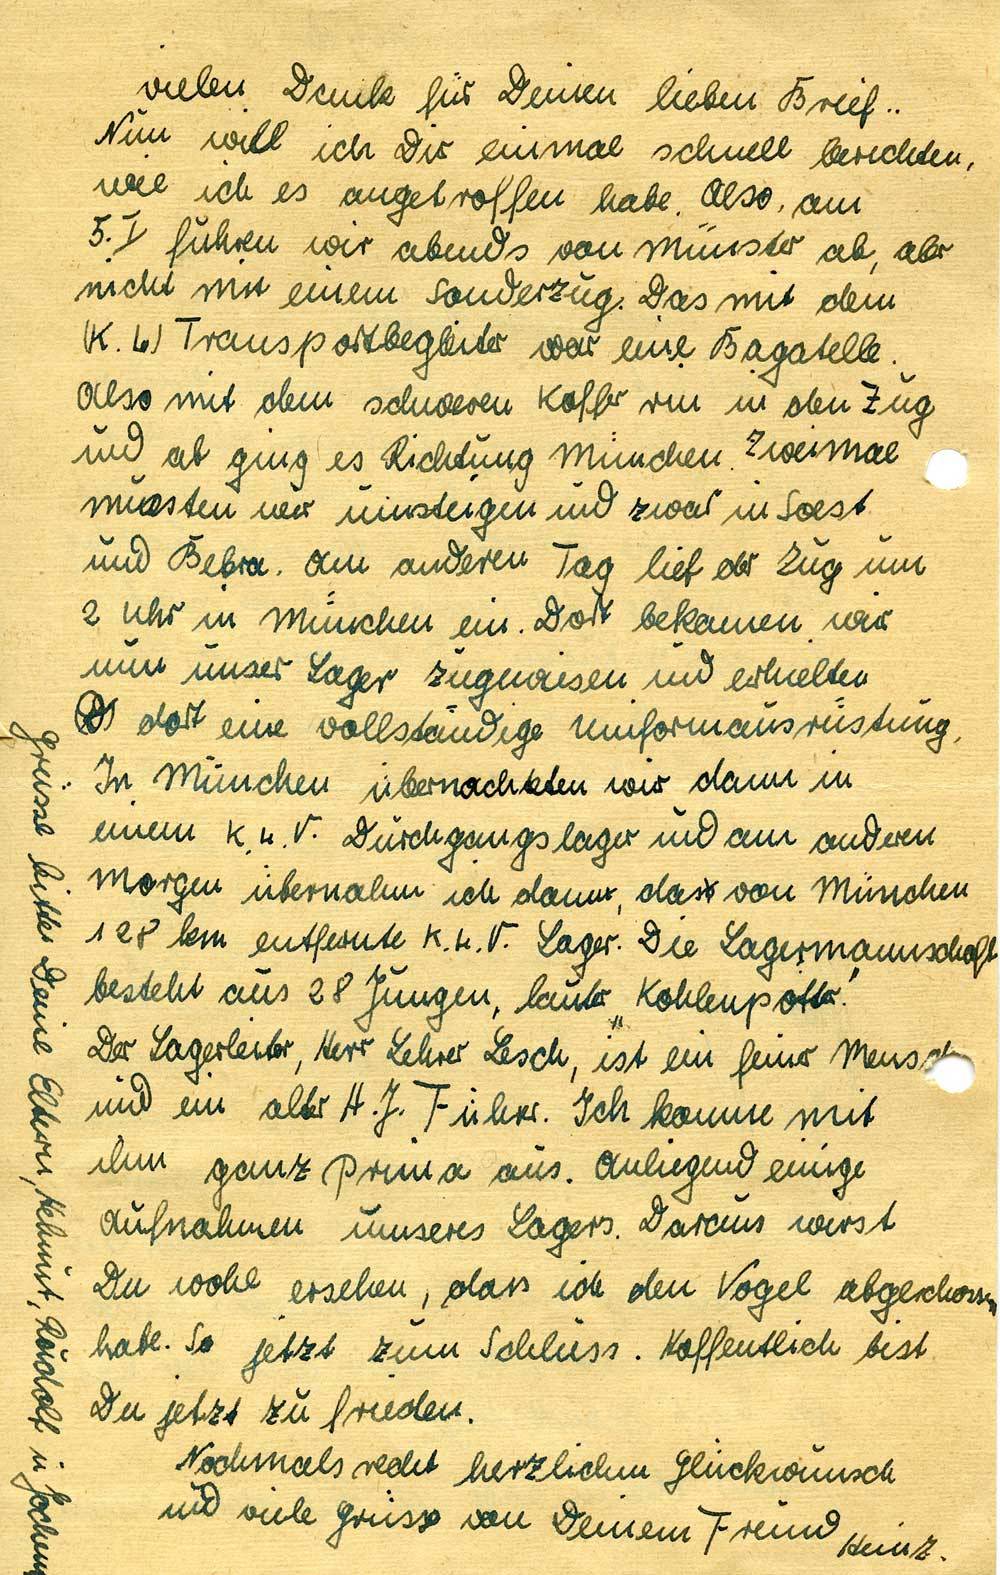 vielen Dank für Deinen lieben Brief..
Nun will ich Dir einmal schnell berichten,
wie ich es angetroffen habe. Also, am
5. I fuhren wir abends von Münster ab, aber
nicht mit einem Sonderzug. Das mit dem
(K.L.) Transportbegleiter war eine Bagatelle.
Also mit dem schweren Koffer rin in den Zug
und ab ging es Richtung München. Zweimal
mussten wir umsteigen und zwar in Soest
und Bebra. Am anderen Tag lief der Zug um
2 Uhr in München ein. Dort bekamen wir
nun unser Lager zugewiesen und erhielten
dort eine vollständige Uniformausrüstung.
In München übernachteten wir dann in
einem K.L.V. Durchgangslager und am anderen
Morgen übernahm ich dann, das von München
128 km entfernte K.L.V. Lager. Die Lagermannschaft
besteht aus 28 Jungen, lauter „Kohlenpötter!"
Der Lagerleiter, Herr Lehrer Lesch, ist ein feiner Mensch
und ein alter H.J. Führer. Ich komme mit
ihm ganz prima aus. Anliegend einige
Aufnahmen unseres Lagers. Daraus wirst
Du wohl ersehen, dass ich den Vogel abgeschossen
habe. So jetzt zum Schluss. Hoffentlich bist
Du jetzt zufrieden.
Nochmals recht herzlichen Glückwunsch
und viele Grüsse von Deinem Freund
Heinz.
Grüsse bitte Deine Eltern, Helmut, Rudolf u Jochem